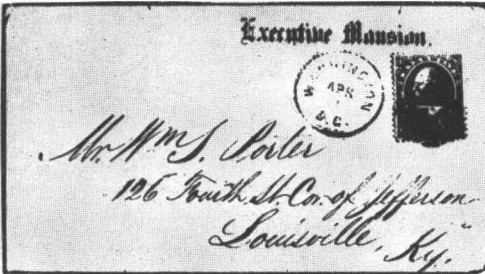 Executive Mansion.
WASHINGTON
APR
1
D.C.
Mr. Wm S. Porter
126 Fourth St. Cor. of Jefferson
Louisville, Ky.